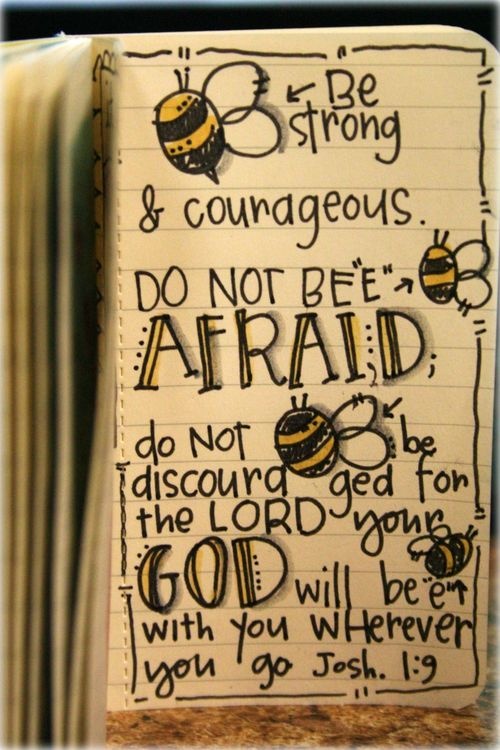 Be
strong
& courageous.
DO NOT BE"E"
AFRAID;
do NOT be
discouraged for
the LORD your
GOD will be"e"
with you WHerever
you go Josh. 1:9